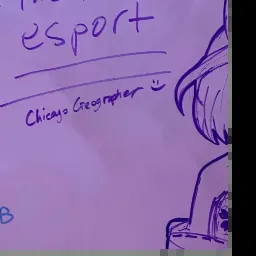 esport
Chicago Geographer
B